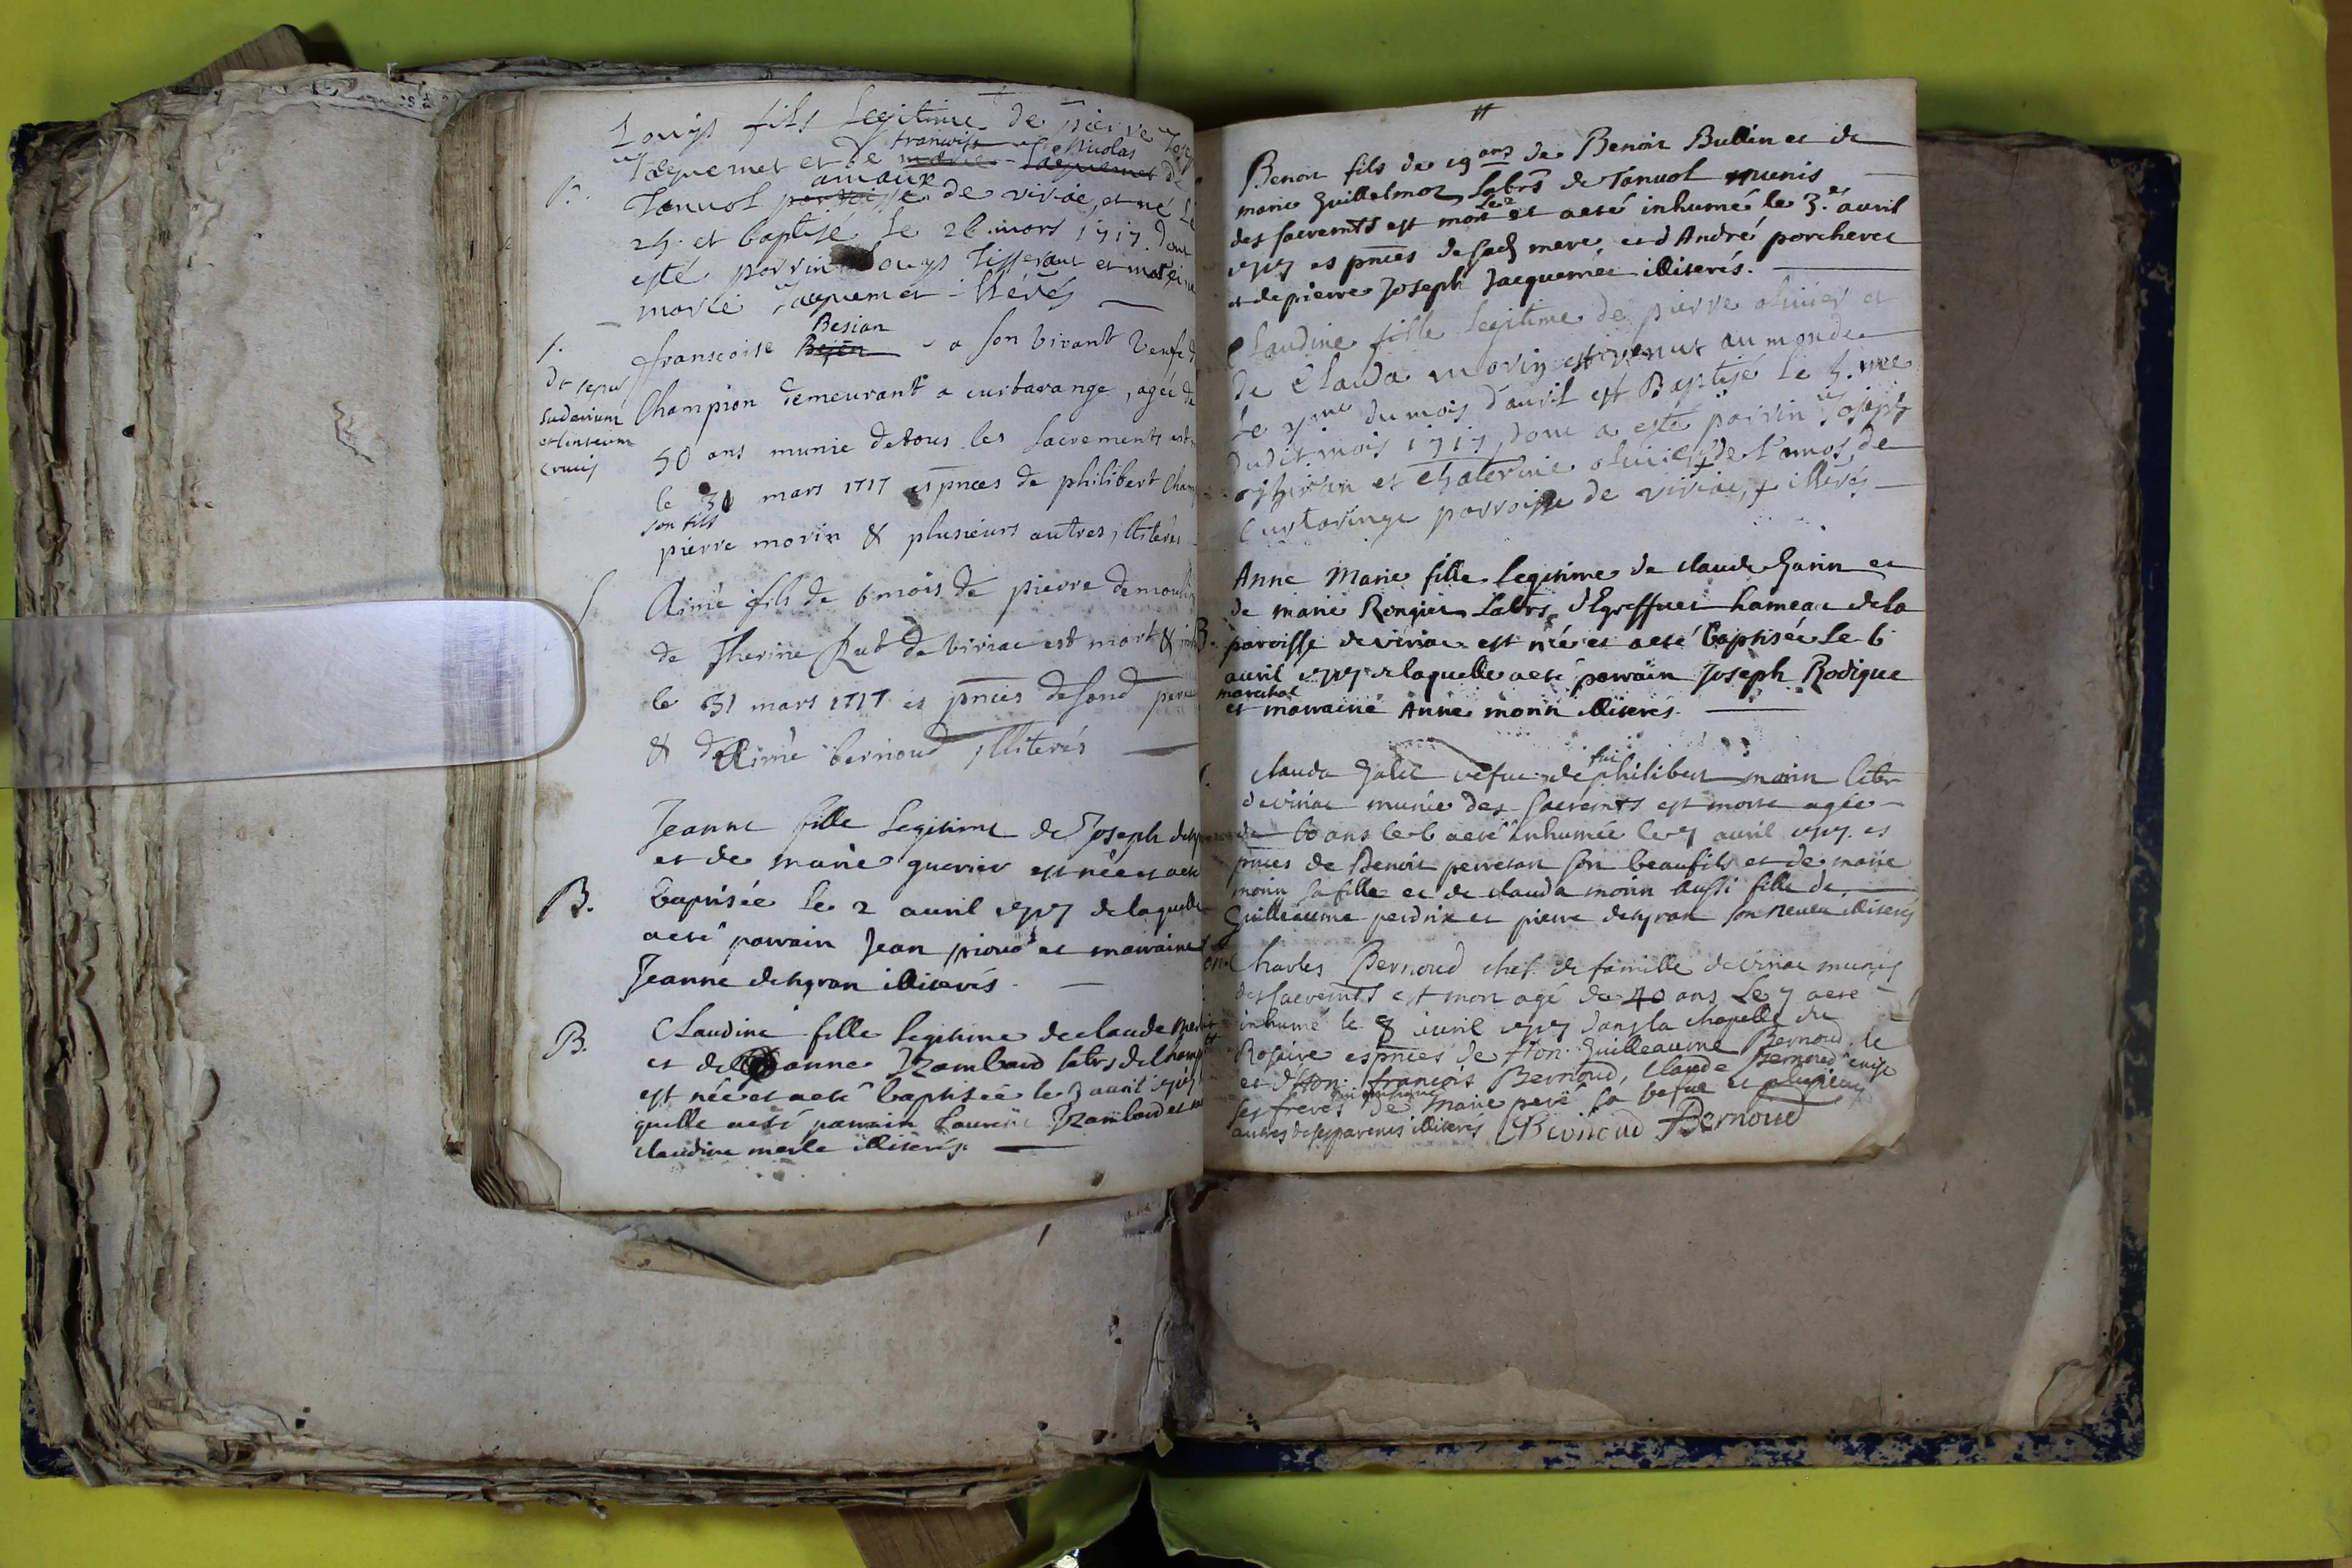 Louys fils legitime de pierre
françoise Nicolas
Jaquemet et de marie Jaquemet de
amaux
Tanuol parroisse de viriac, et né le
25. et baptisé le 26. mars 1717. dont
esté parrin Louys Tisserant et mareine
marie Jaquemet illérés
S.
Besian
françoise Bejen a son vivant veufe d
Champion demeurant a curtarange, agée de
50 ans munie de tous les sacrements est
le 31 mars 1717 es pnces de philibert Cham
son fils
pierre morin & plusieurs autres illiterés
sudarium
et linteum
crucis
S.
Aimé fils de 6 mois de pierre demoulin
de Therine Rut de viriac est mort &
le 31 mars 1717 es pnces desond pere
& d'Aimé bernoud illiterés
Jeanne fille legitime de Joseph
et de marie guerier est née et a eté
B. baptisée le 2 avril 1717 delaquelle
a eté parrain Jean pioud et marraine
Jeanne dehyran illiterés
B. Claudine fille legitime de claude
et de anne Rambaud labrs de
est née et a eté baptisée le 3 auril 1717
quelle a eté parrain Laurent Rambaud et
claudine merle illiterés
11
Benoit fils de 19 ans de Benoit Bullin et de
marie Guillelmot labrs de Tanuol munis
des sacremts est mort le 2 et a eté inhumé le 3.e auril
1717 es pnces de sad mere, et d'André porcheret
et de pierre Joseph Jacquemée illiterés.
Claudine fille legitime de pierre oliuier et
de Clauda morin est venue au monde
le 3me du mois d'auril est Baptisé le 5.me
dudit mois 1717, dont a esté parrin Joseph
et Chaterine oliuier de l'amos de
Curtaringe parroisse de viriac, illérés
Anne Marie fille legitime de claude Garin et
de marie Rongier labrs d'Egreffuet hameau dela
B. paroisse de viriac est née et a eté baptisée le 6
auril 1717 delaquelle a eté parrain Joseph Rodigue
marechal
et marraine Anne morin illiterés.
clauda Galet vefue de fut philibert morin labr
de viriac munie des sacremts est morte agée
de 60 ans le 6 a eté inhumée le 7 auril 1717. es
pnces de Benoit perretan son beaufils et de marie
morin sa fille et de clauda morin aussi fille de
Guilleaume perdrix et pierre dehyran son neueu illiterés
Charles Bernoud chef de famille de viriac munis
des sacremts est mort agé de 40 ans le 7 a eté
inhumé le 8 auril 1717 dans la chapelle du
Rosaire es pnces de hon. Guilleaume Bernoud le
et d'hon. françois Bernoud, Claude Bernoud
ses freres de Marie peré sa vefue et plusieurs
autres de ses parents illiterés CBernoud Bernoud